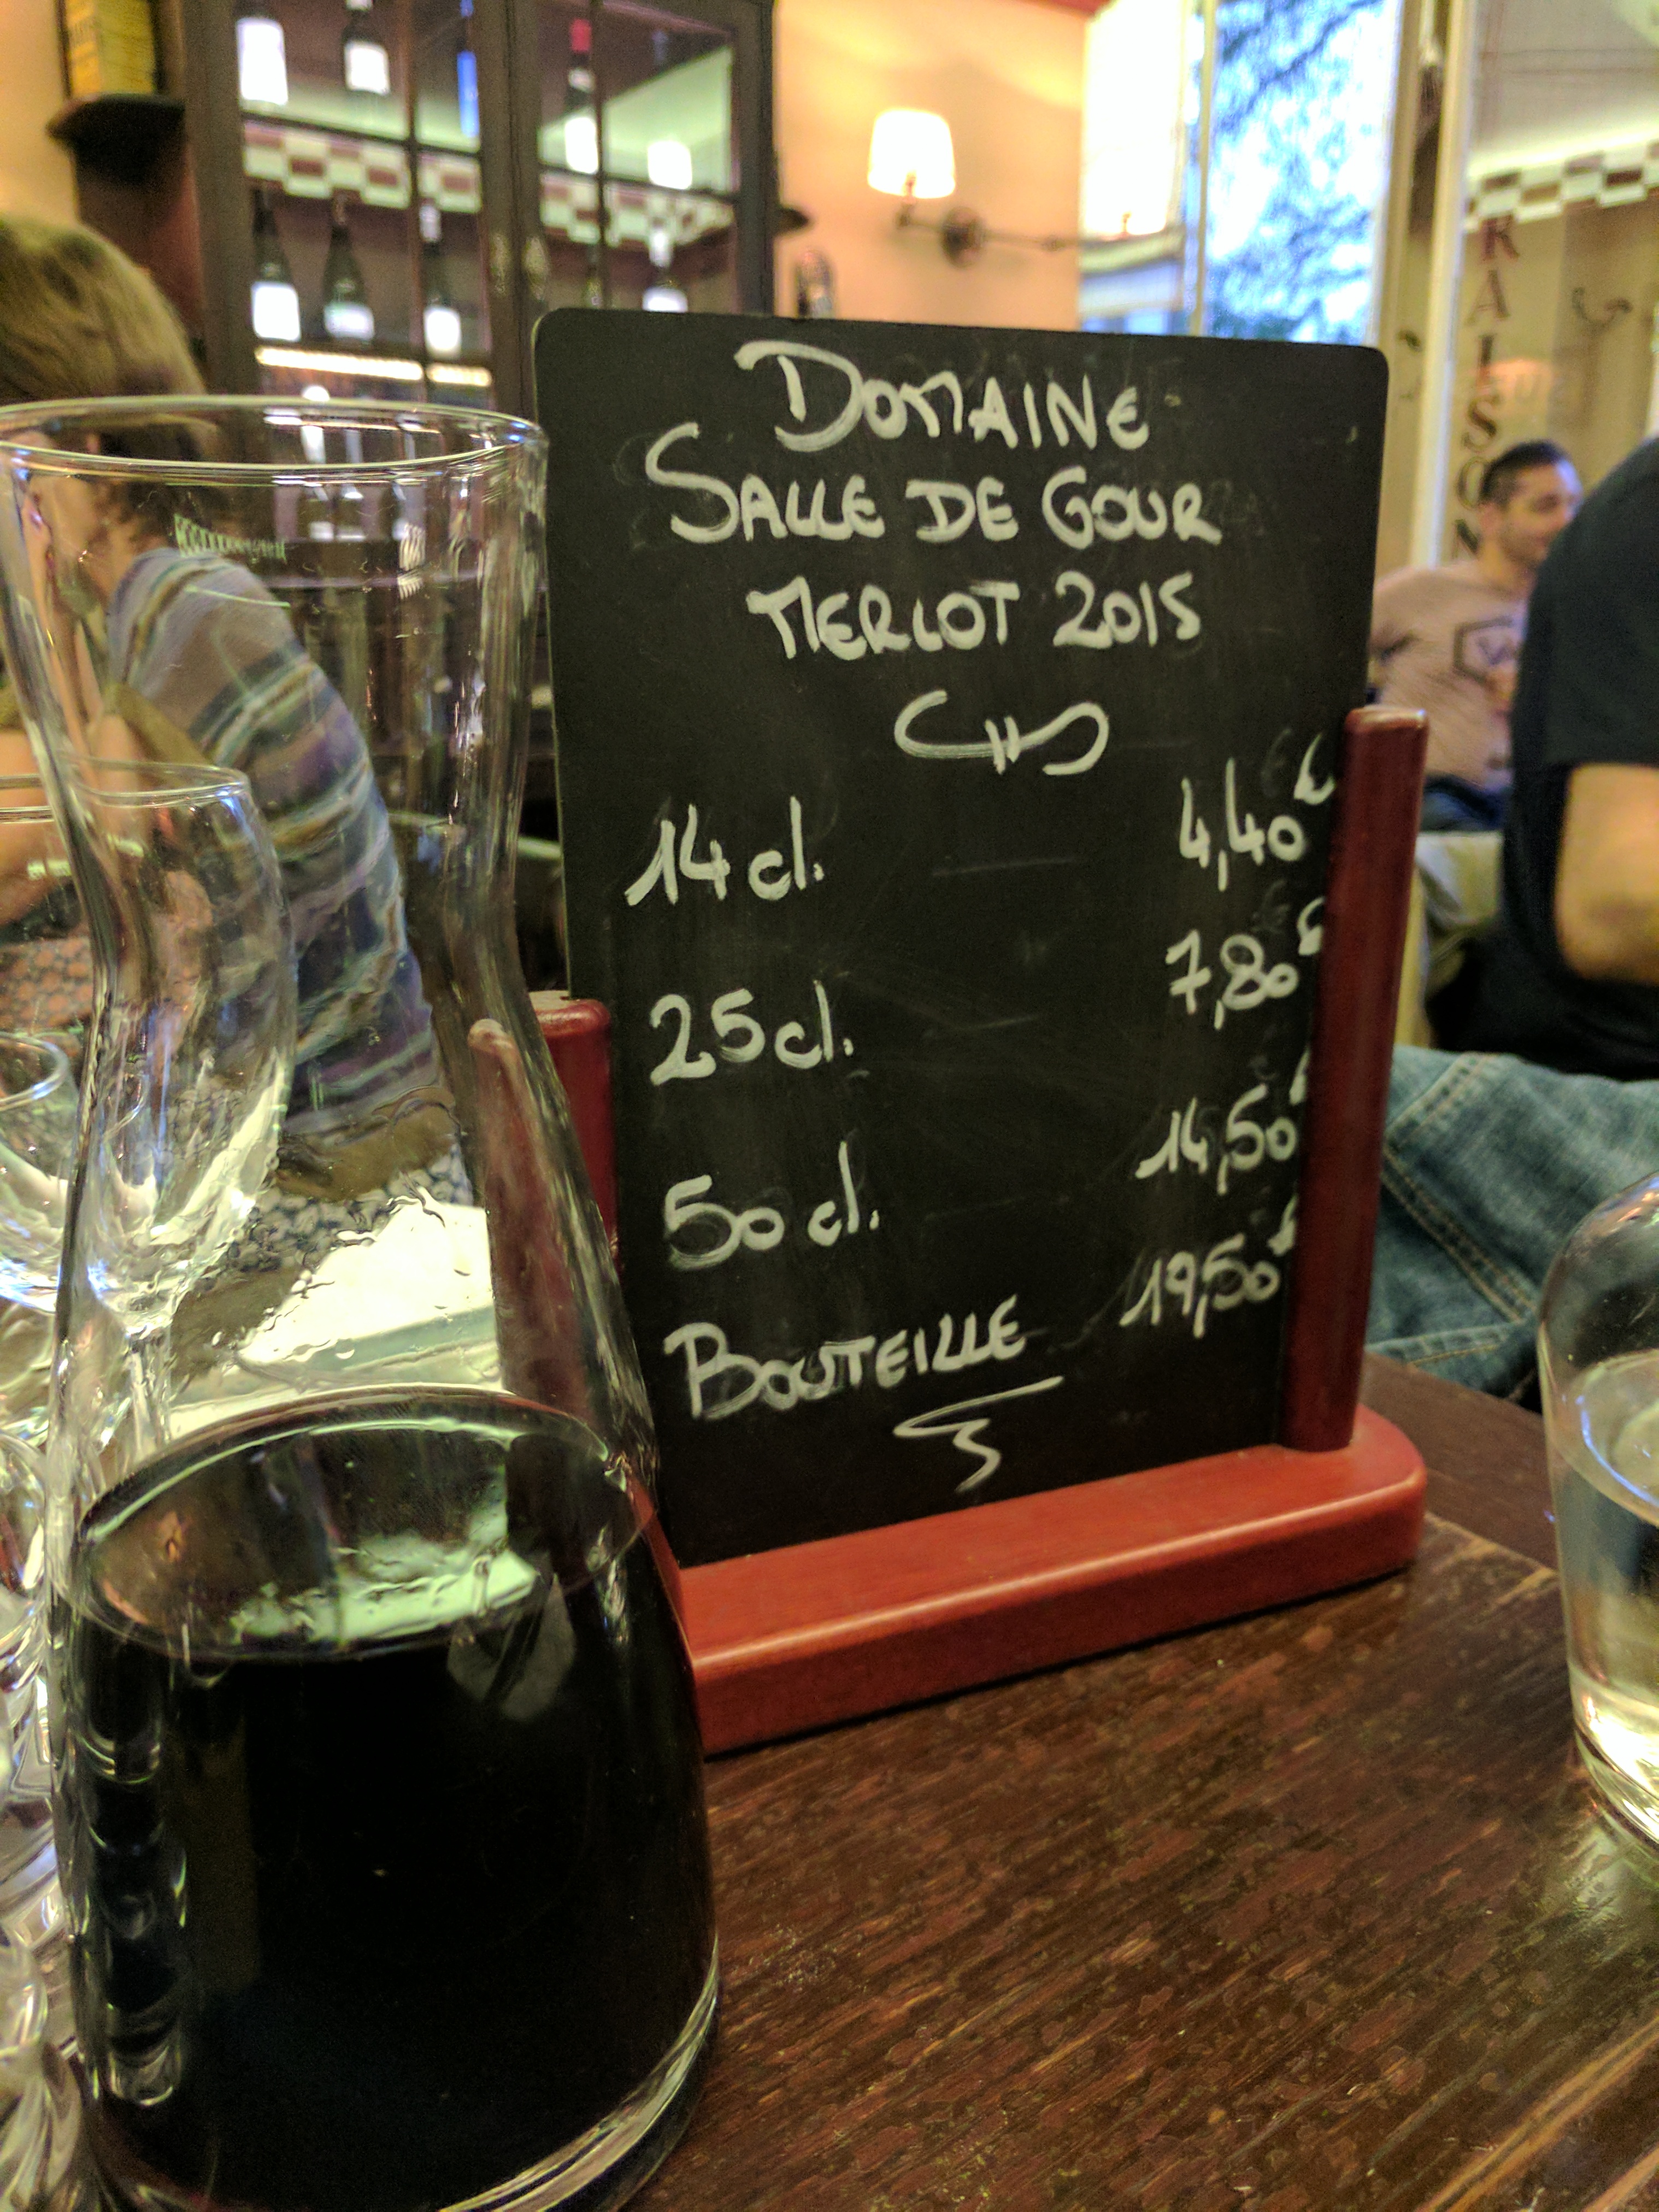 DOMAINE
SALLE DE GOUR
MERLOT 2015
14 cl. 4,40€
25 cl. 7,80€
50 cl. 14,50€
BOUTEILLE 19,50€
RAISON